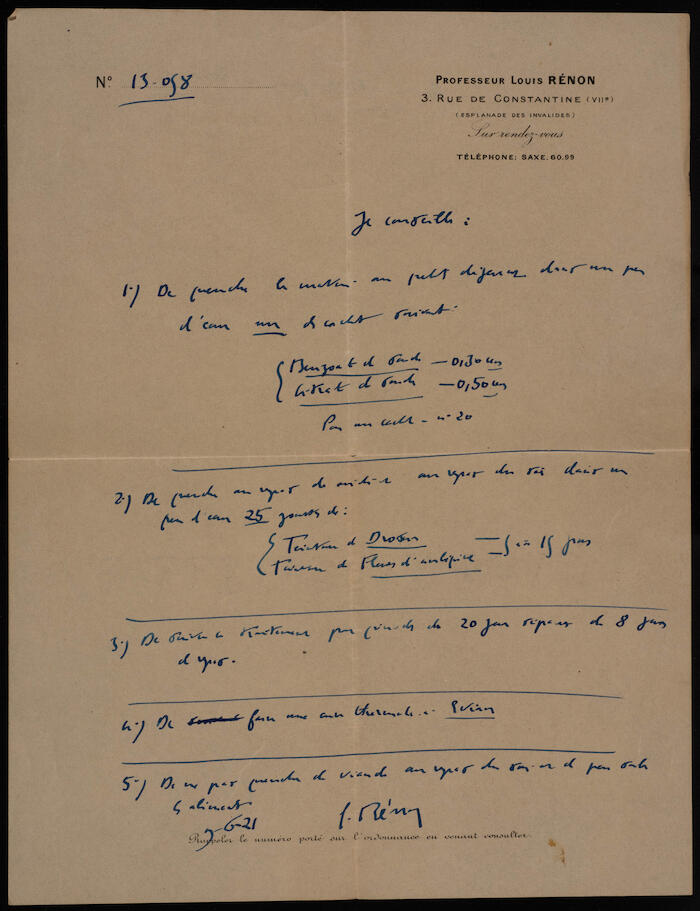 N° 13-058
PROFESSEUR LOUIS RÉNON
3. RUE DE CONSTANTINE (VIIe)
(ESPLANADE DES INVALIDES)
Sur rendez-vous
TÉLÉPHONE: SAXE. 60.99
Je conseille :
1-) De prendre le matin au petit déjeuner dans un peu
d'eau un cachet suivant.
Benzoate de soude — 0,30
Citrate de soude — 0,50
Pour un cachet - n° 20
2-) De prendre au repas de midi et au repas du soir dans un
peu d'eau 25 gouttes de :
Teinture de Drosera
Teinture de Fleurs d'aubépine — āā 15 grs
3-) De suivre ce traitement par périodes de 20 jours séparées de 8 jours
de repos.
4-) De faire une cure thermale à Evian
5-) De ne pas prendre de viande au repas du soir et de peu saler
les aliments
7-6-21 L. Rénon
Rappeler le numéro porté sur l'ordonnance en venant consulter.